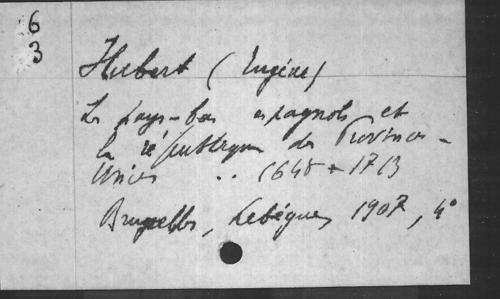 6
3
Hubert (Eugène)
Les pays-bas espagnols et
la république des Provinces-
Unies .. 1648 + 1713
Bruxelles, Lebègue, 1907, 4°